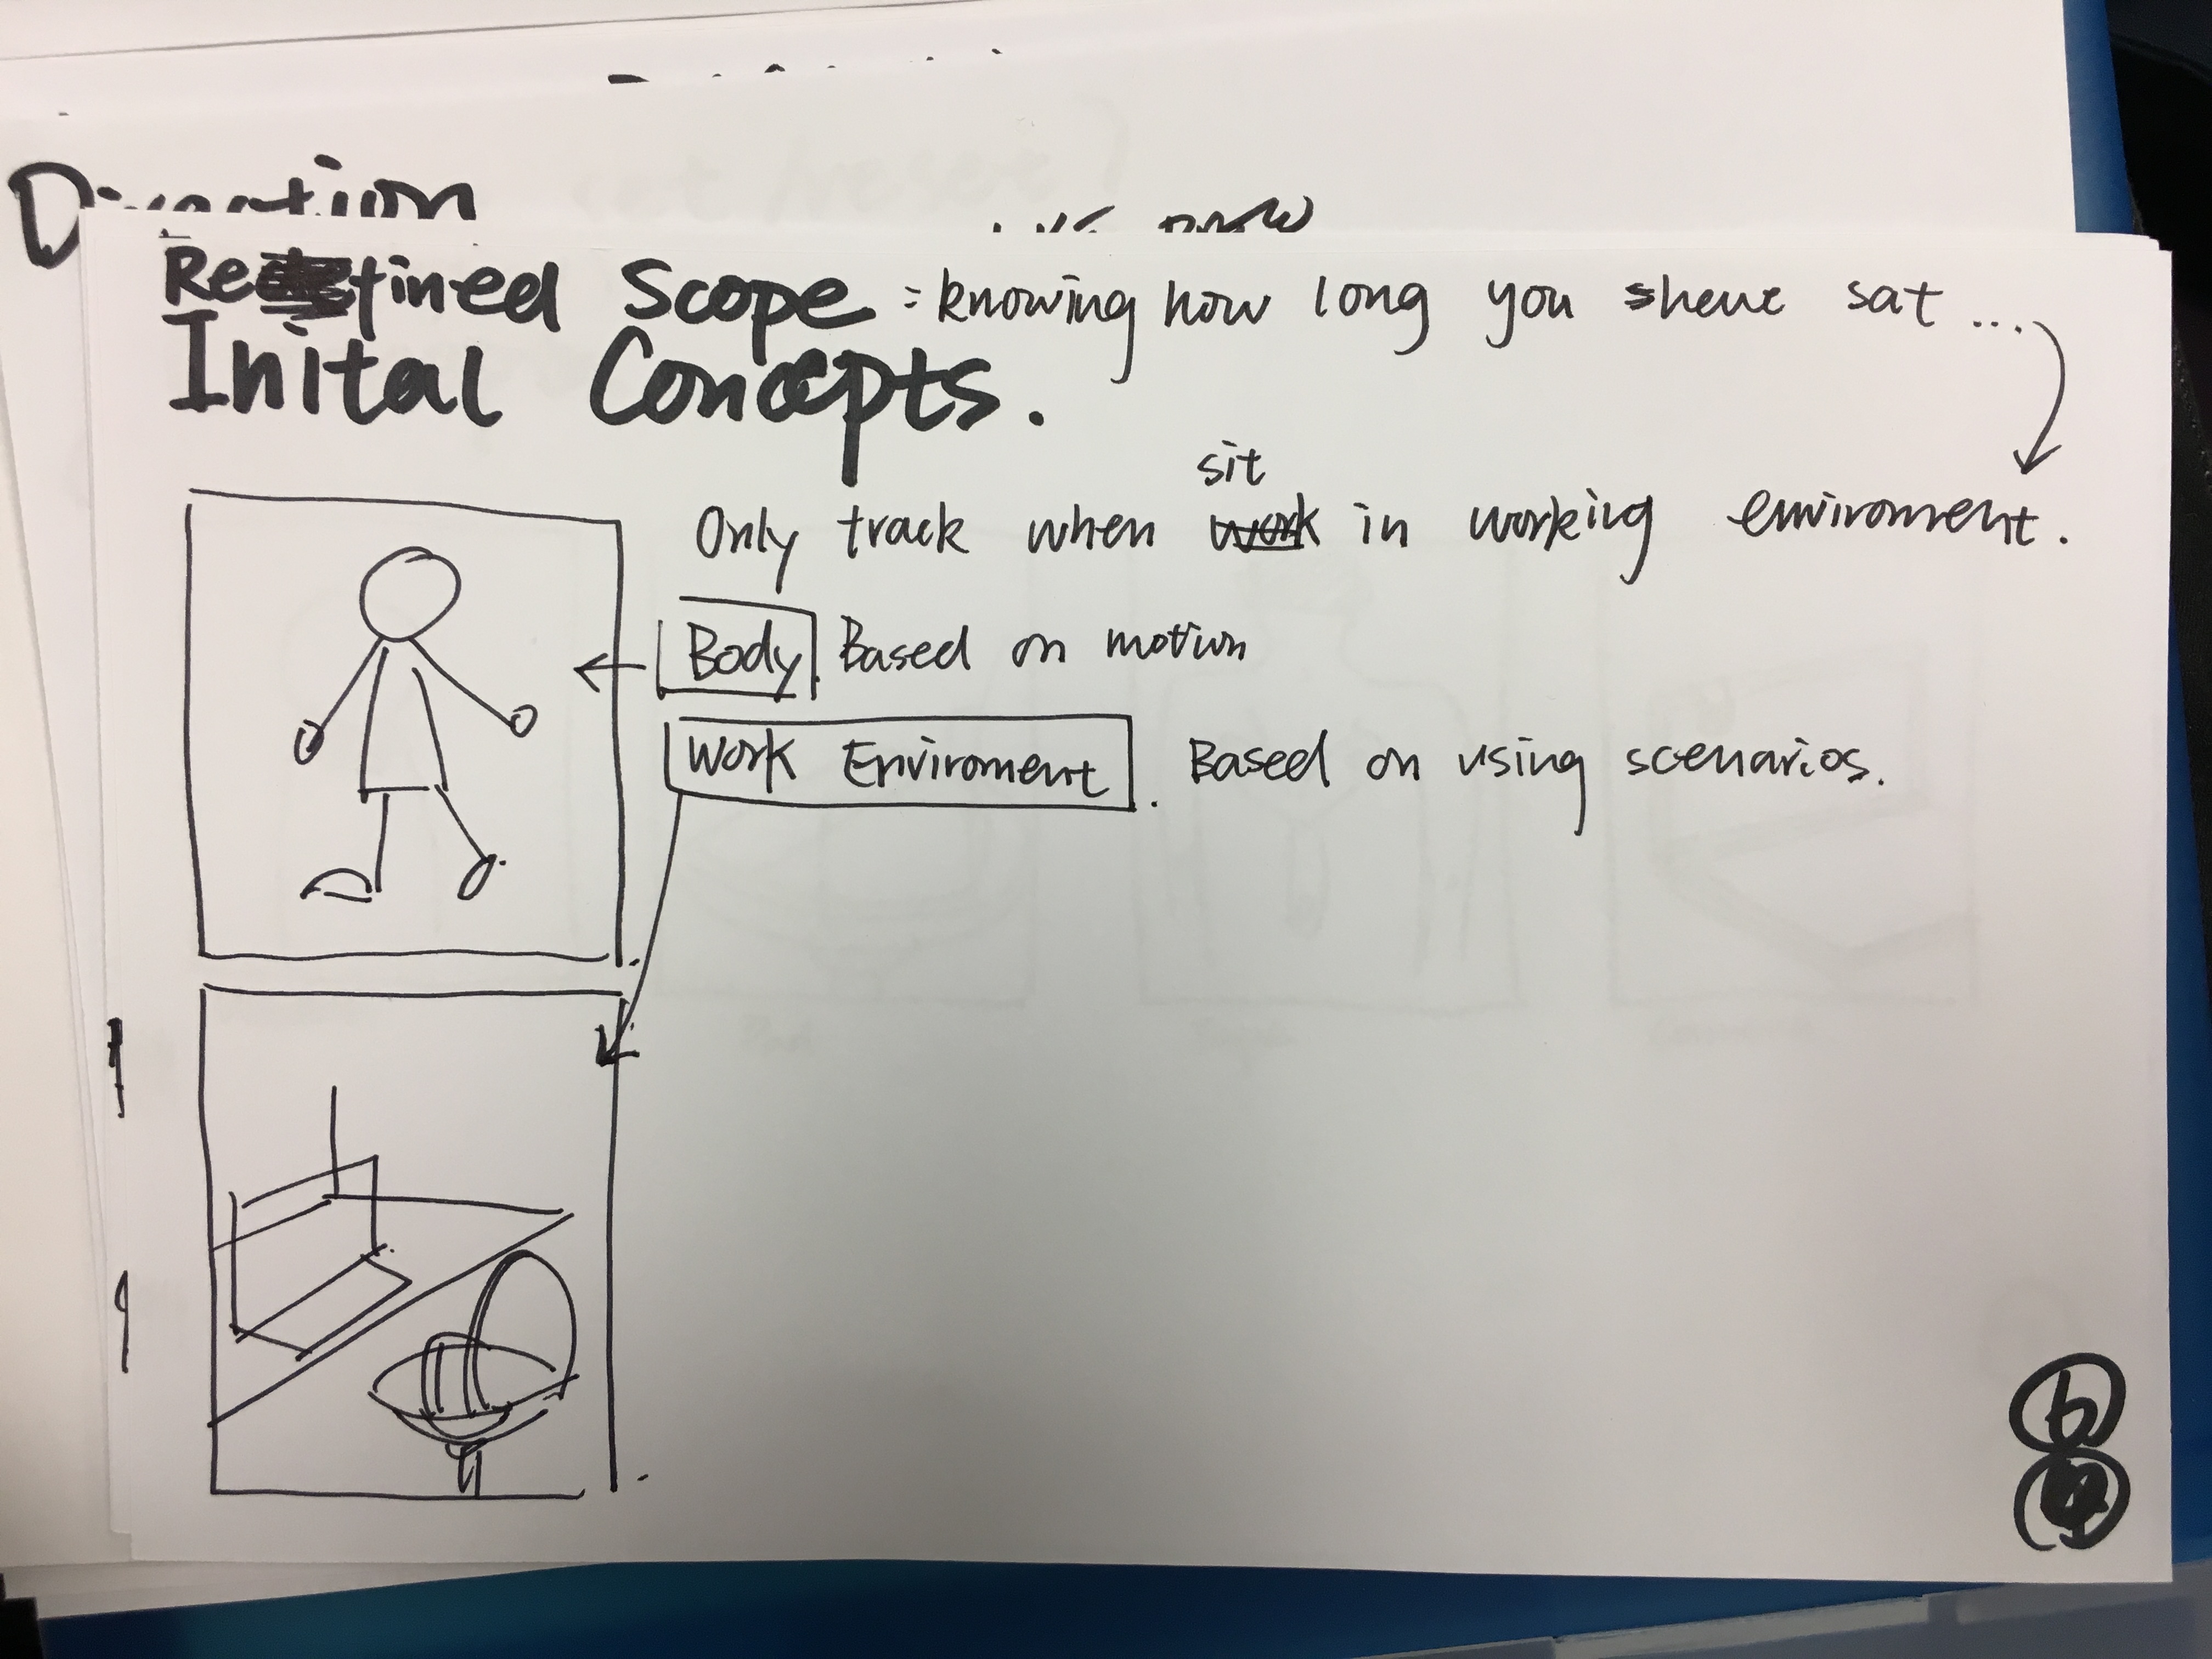 Refined Scope = knowing how long you sat ...
Inital Concepts.
sit
Only track when work in working enviroment.
Body. Based on motion
Work Enviroment. Based on using scenarios.
6